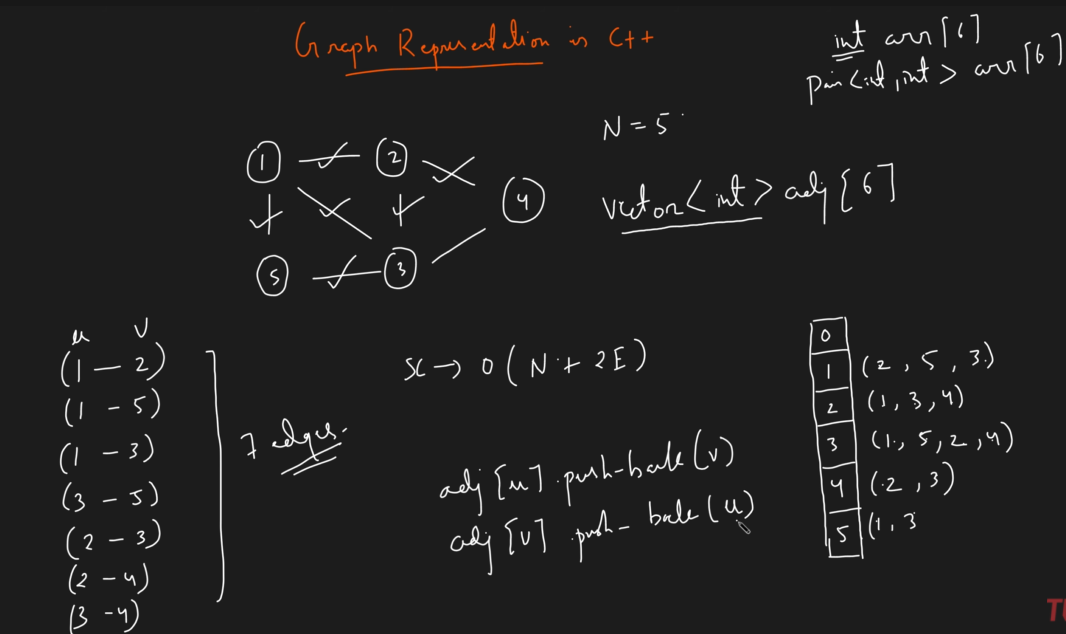 Graph Representation in C++
int arr[6]
pair<int,int> arr[6]
N = 5
1
2
4
5
3
vector<int> adj[6]
u v
(1 - 2)
(1 - 5)
(1 - 3)
(3 - 5)
(2 - 3)
(2 - 4)
(3 - 4)
7 edges.
SC → O(N + 2E)
adj[u].push-back(v)
adj[v].push-back(u)
0
1 (2, 5, 3)
2 (1, 3, 4)
3 (1, 5, 2, 4)
4 (2, 3)
5 (1, 3